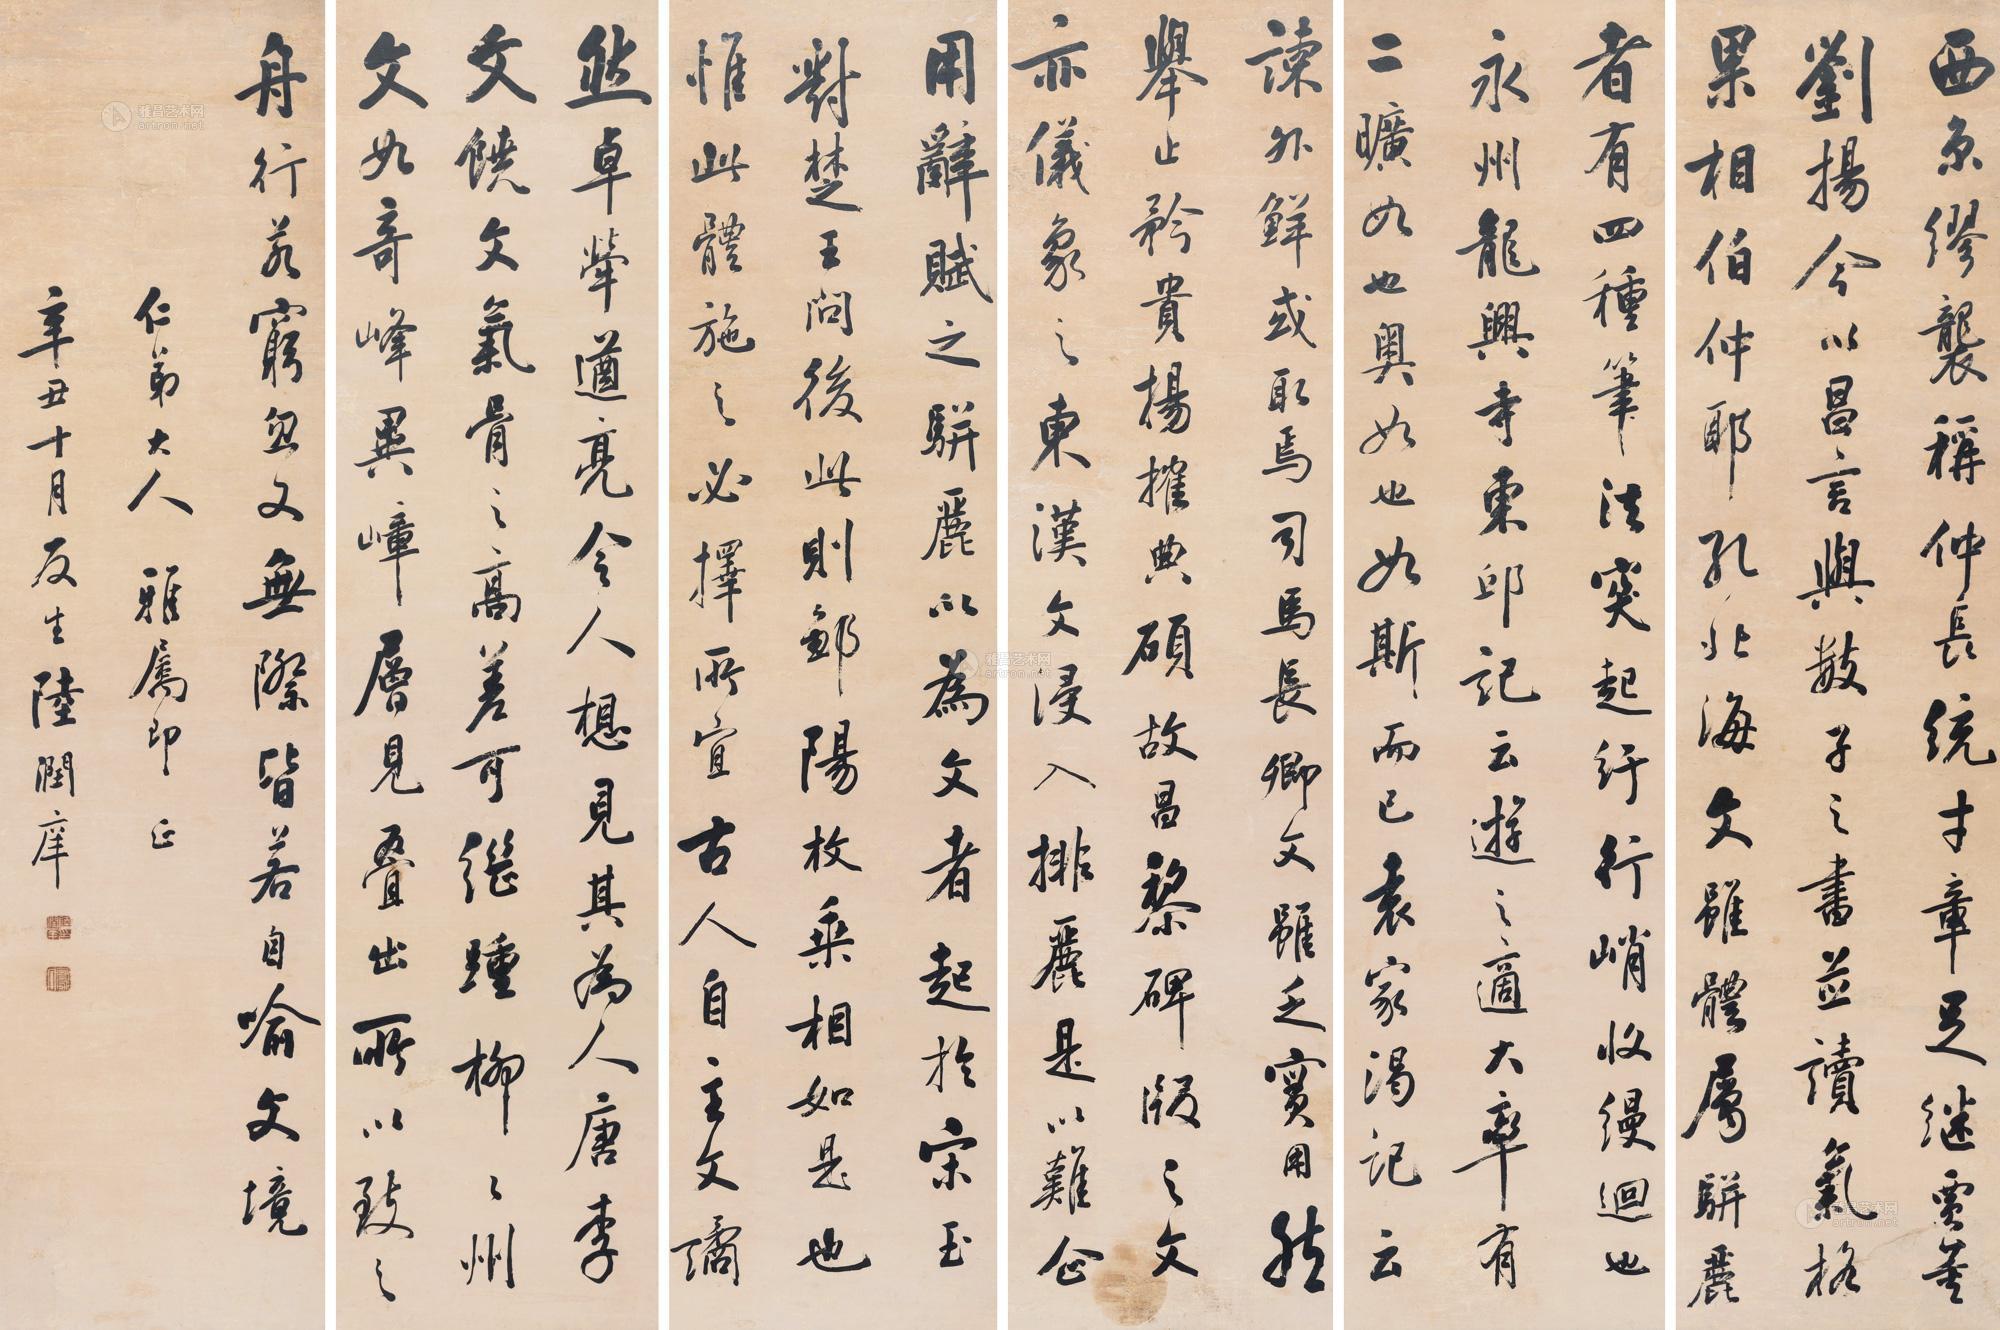 西京繆襲稱仲長統才章足继賈董
劉揚今以昌言與數子之書並讀氣格
果相伯仲耶孔北海文雖體屬駢麗
者有四種筆法突起紆行峭收縵迴也
永州龍興寺東邱記云遊之適大率有
二曠如也奧如也如斯而已袁家渴記云
諫外鮮或取焉司馬長卿文雖乏實用然
舉止矜貴揚搉典碩故昌黎碑版之文
亦儀象之東漢文浸入排麗是以難企
用辭賦之駢麗以為文者起於宋玉
對楚王問後此則鄒陽枚乘相如是也
惟此體施之必擇所宜古人自主文譎
然卓犖遒亮令人想見其為人唐李
文饒文氣骨之高差可繼踵柳柳州
文如奇峰異嶂層見疊出所以致之
舟行若窮忽又無際皆若自喻文境
仁弟大人 雅屬即正
辛丑十月友生陸潤庠
雅昌艺术网
artron.net
雅昌艺术网
artron.net
雅昌艺术网
artron.net